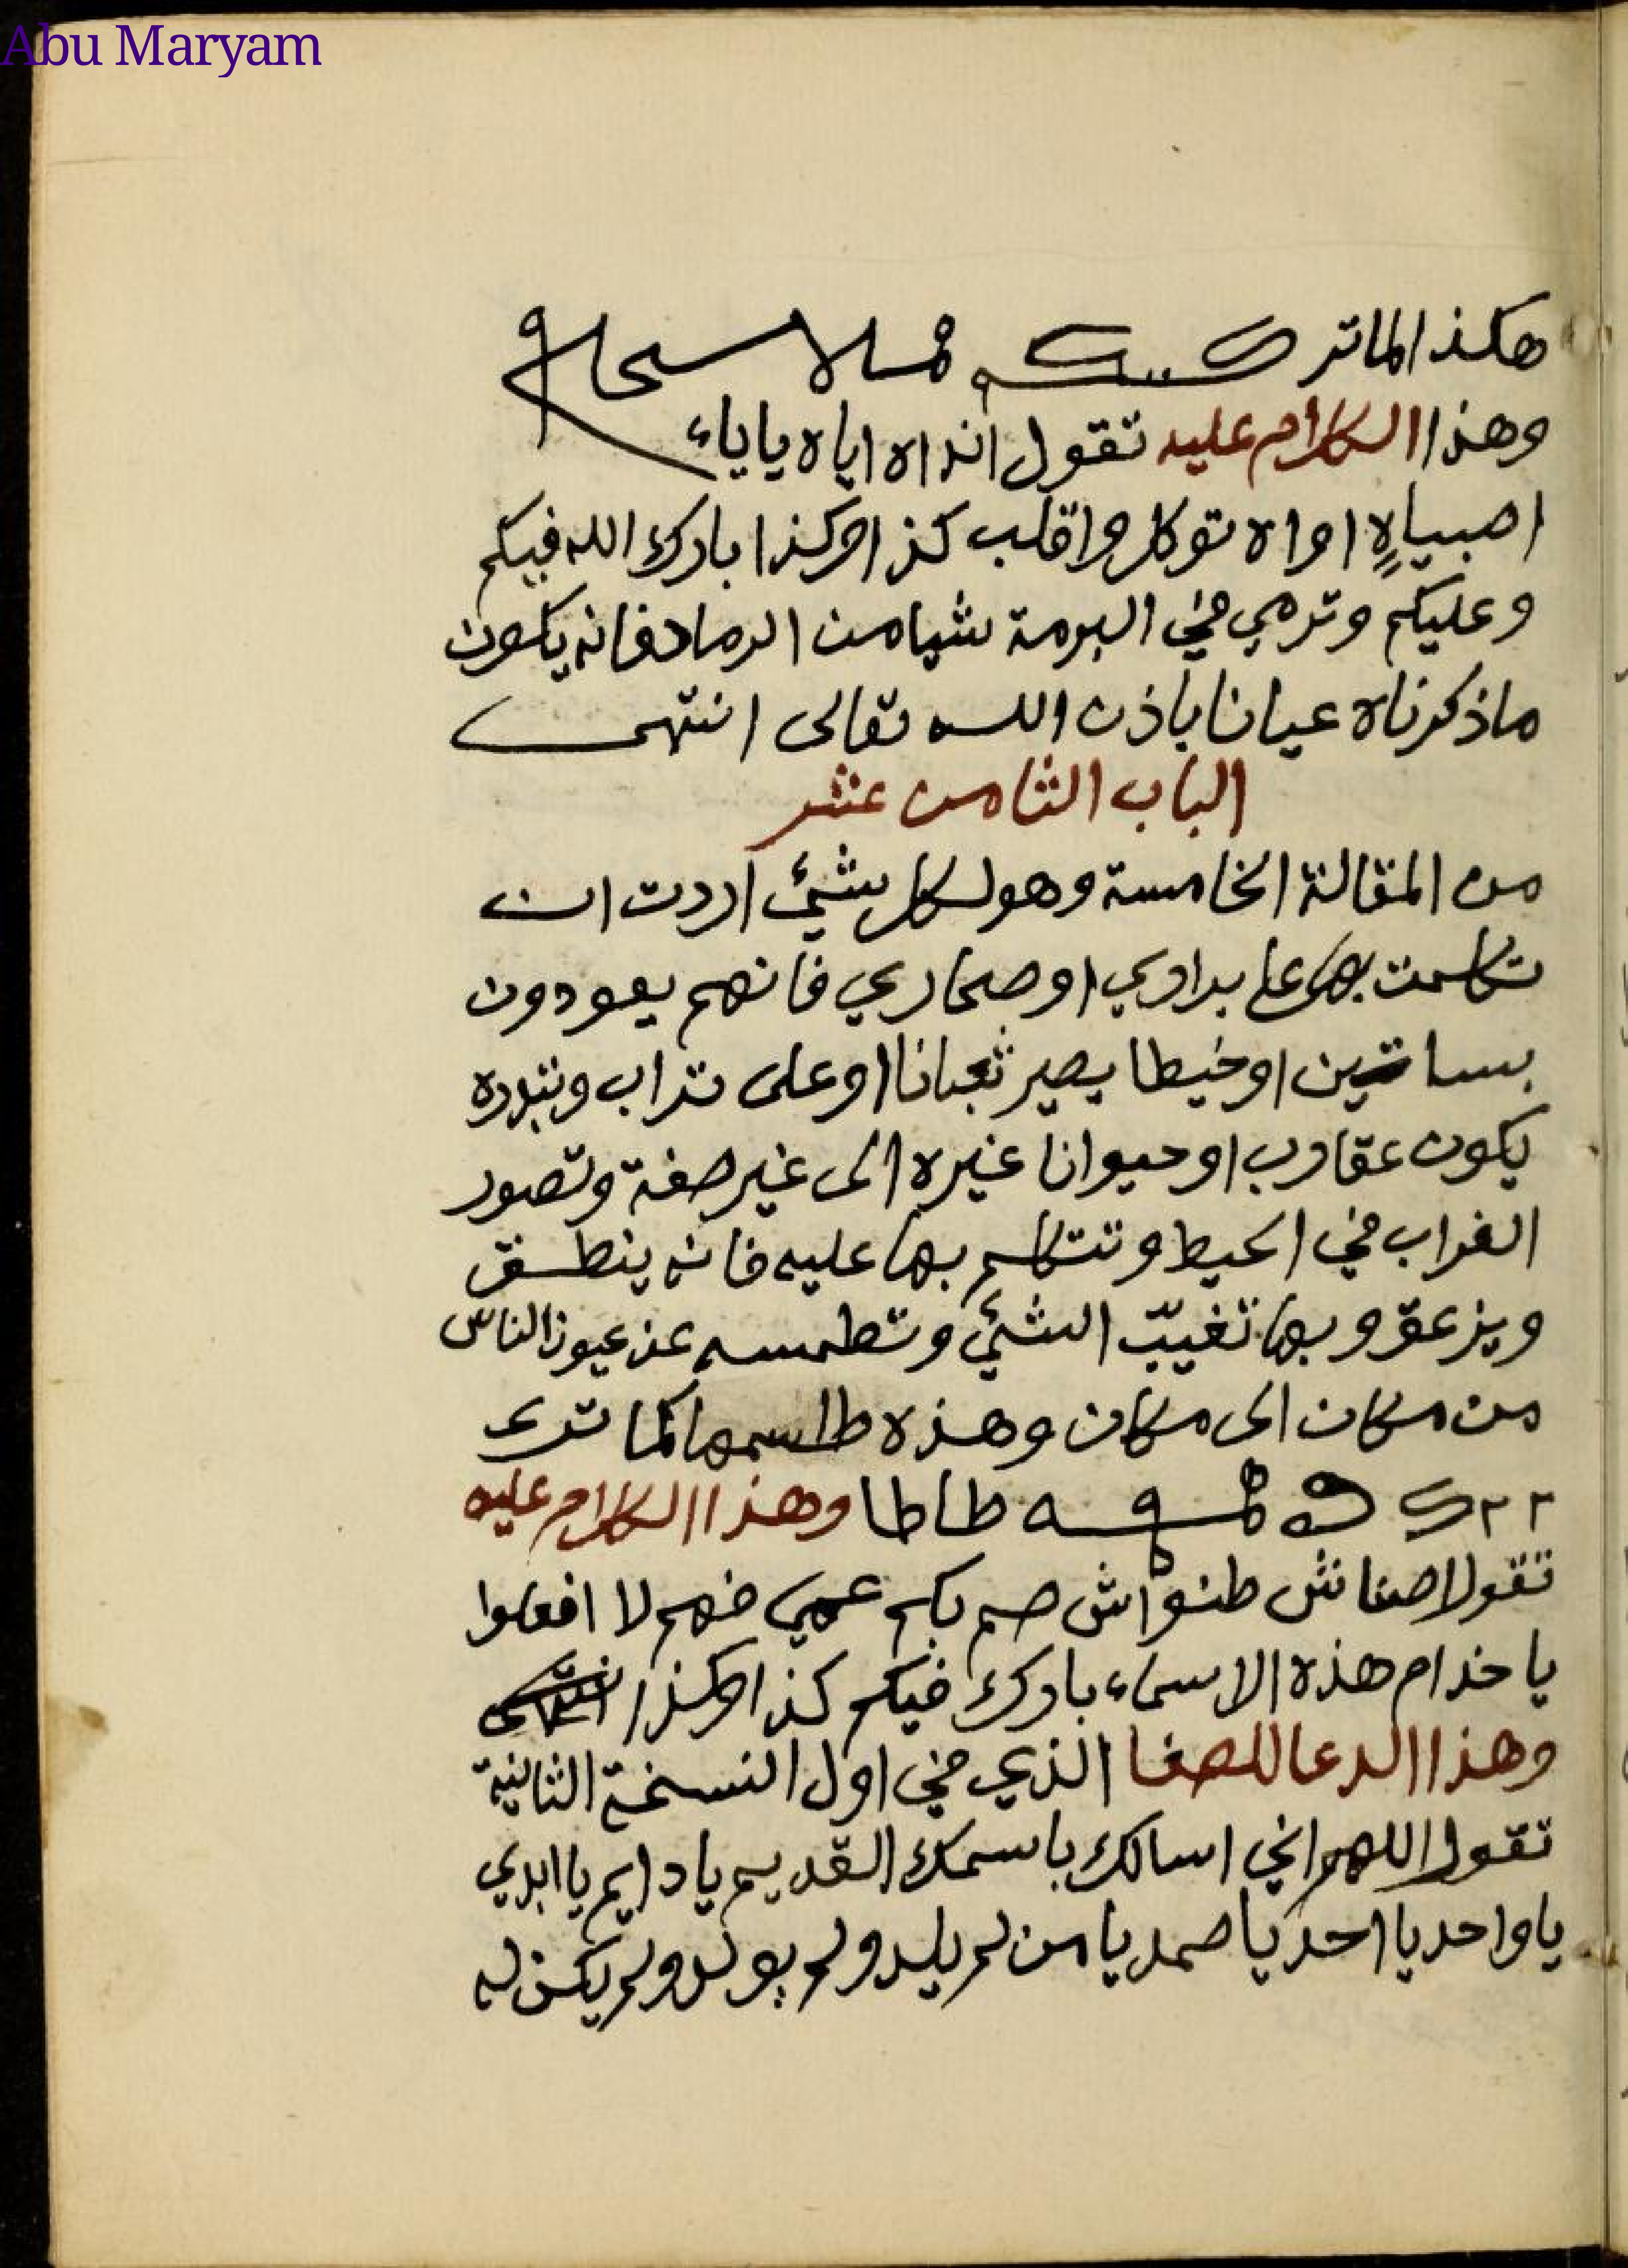 Abu Maryam
هكذا لماتر
وهذا الكلام عليه تقول انداه اياه ياياء
اصبياهٍ اواه توكلوا قلب كذا وكذا بارك الله فيكم
وعليكم وترمي في البرمة شيا من الرماد فانه يكون
ماذكرناه عيانا باذن الله تعالى انتهى
الباب الثامن عشر
من المقالة الخامسة وهو لكل شيئ اردت ان
تكلمت بها على براري او صحاري فانهم يعودون
بساتين او خيطا يصير ثعبانا او على تراب وتبدره
يكون عقارب او حيوانا غيره الى غير صفة وتصور
الغراب في الحيط وتتكلم بها عليه فانه ينطق
ويزعق وبها تغيبّ الشيئ وتطمسه عن عيون الناس
من مكان الى مكان وهذه طلاسمها كما ترى
طاطا وهذا الكلام عليه
تقول اصفانش طنواش صم بكم عمي فهم لا افعلوا
ياخدام هذه الاسماء بارك فيكم كذا وكذا انتهى
وهذا الدعا للصفا الذي في اول النسخة الثانية
تقول اللهم اني اسالك باسمك القديم يا دايم يا ابدي
يا واحد يا احد يا صمد يا من لم يلد ولم يولد ولم يكن له